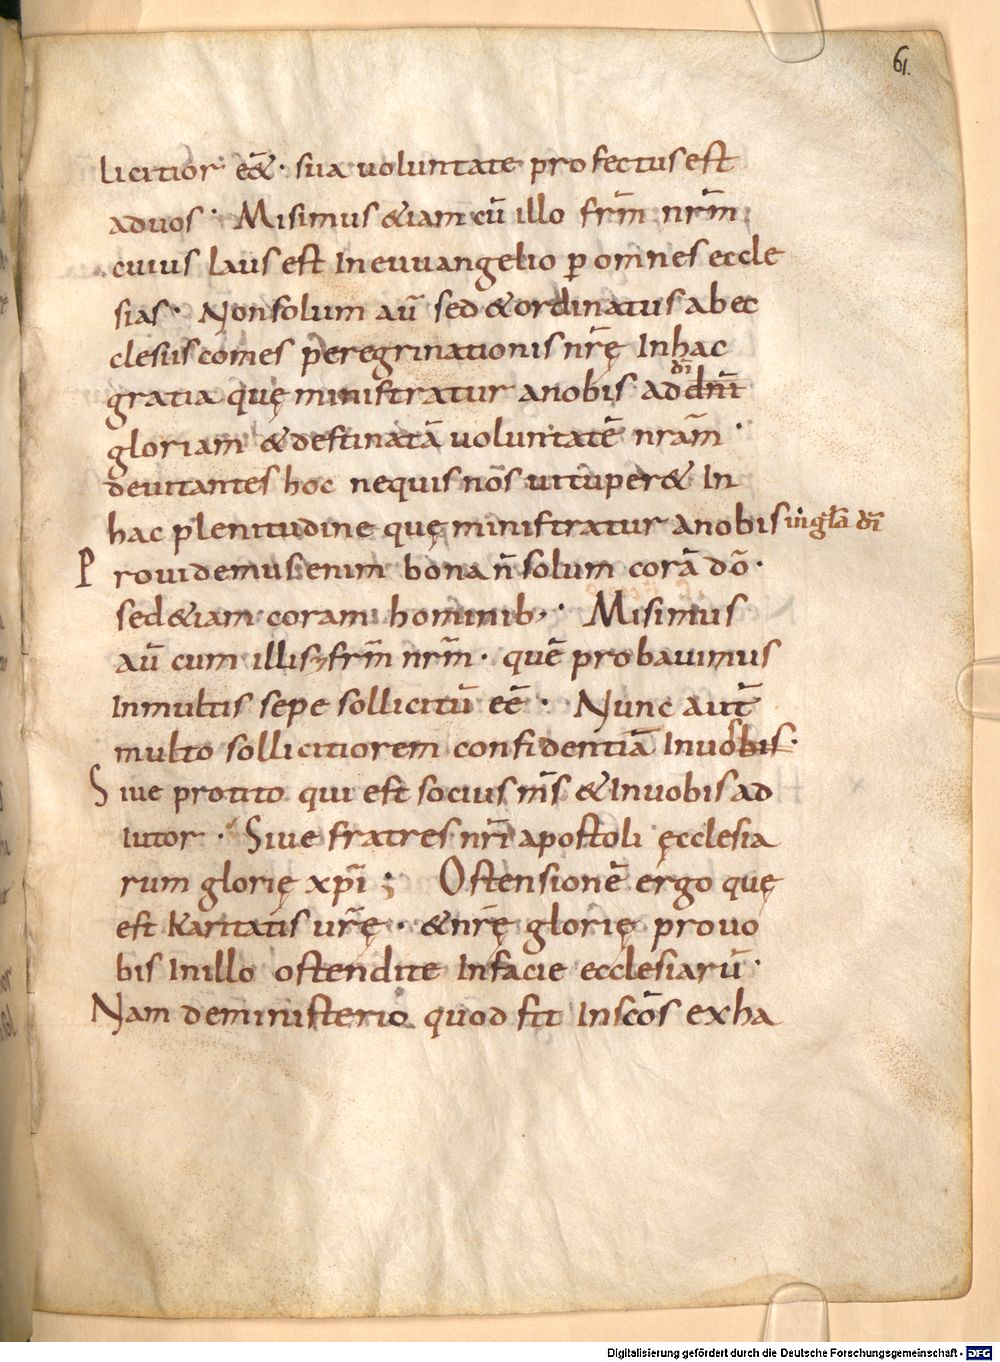 61.
licitior eēt · sua uoluntate profectus est
aduos · Misimus &iam cū illo frm̄ nrm̄
cuius laus est Ineuuangelio p omnes eccle
sias · Nonsolum aū sed &ordinatus abec
clesiis comes peregrinationis nrę̄ Inhac
gratia quę ministratur anobis ad dn̄i dī
gloriam &destinatā uoluntatē nrām ·
deuitantes hoc nequis nos uituper& In
hac plenitudine quę ministratur anobis in głā dī
Prouidemus enim bona n̄ solum corā dō ·
sed &iam coram hominib; · Misimus
aū cum illis & frm̄ nrm̄ · quē probauimus
Inmultis sepe sollicitū eē · Nunc aut̄
multo sollicitiorem confidentiā Inuobis ·
Siue protito qui est socius ms̄ &Inuobis ad
iutor · Siue fratres nrī apostoli ęcclesia
rum glorię xpī ; Ostensionē ergo quę
est Karitatis urę̄ · &nrę̄ glorię prouo
bis Inillo ostendite Infacie ecclesiarū ·
Nam deministerio quod fit Inscōs exha
Digitalisierung gefördert durch die Deutsche Forschungsgemeinschaft - DFG